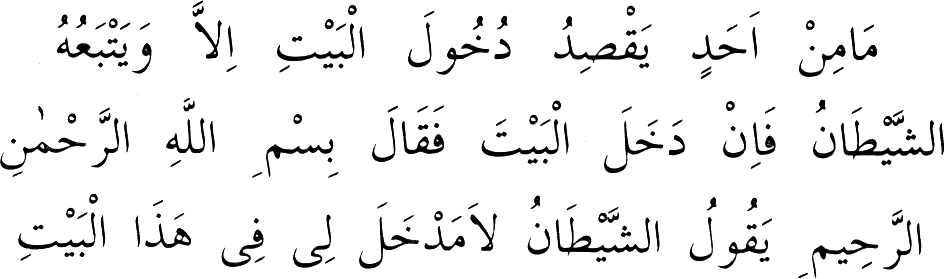 مَامِنْ اَحَدٍ يَقْصِدُ دُخُولَ الْبَيْتِ اِلاَّ وَيَتْبَعُهُ
الشَّيْطَانُ فَاِنْ دَخَلَ الْبَيْتَ فَقَالَ بِسْمِ اللَّهِ الرَّحْمٰنِ
الرَّحِيمِ يَقُولُ الشَّيْطَانُ لاَمَدْخَلَ لِى فِى هَذَا الْبَيْتِ